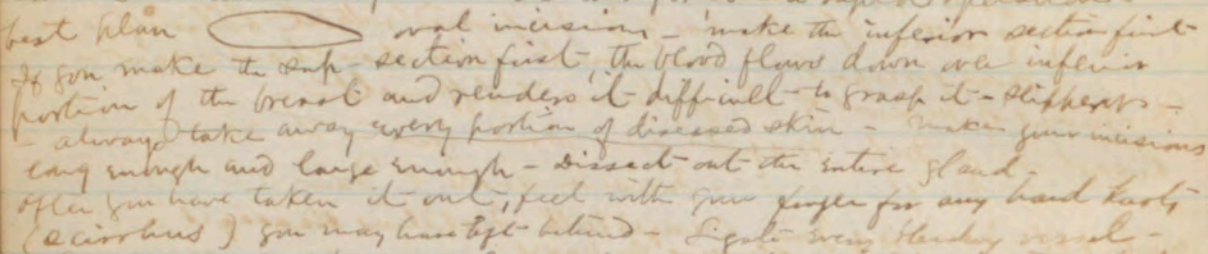 best plan oval incision - make the inferior section first
If you make the sup- section first, the blood flows down over inferior
portion of the breast and renders it difficult to grasp it - slippery -
- always take away every portion of diseased skin - make your incisions
long enough and large enough - Dissect out the entire gland -
after you have taken it out, feel with your finger for any hard knots,
(scirrhus) you may have left behind - Ligate every bleeding vessel -